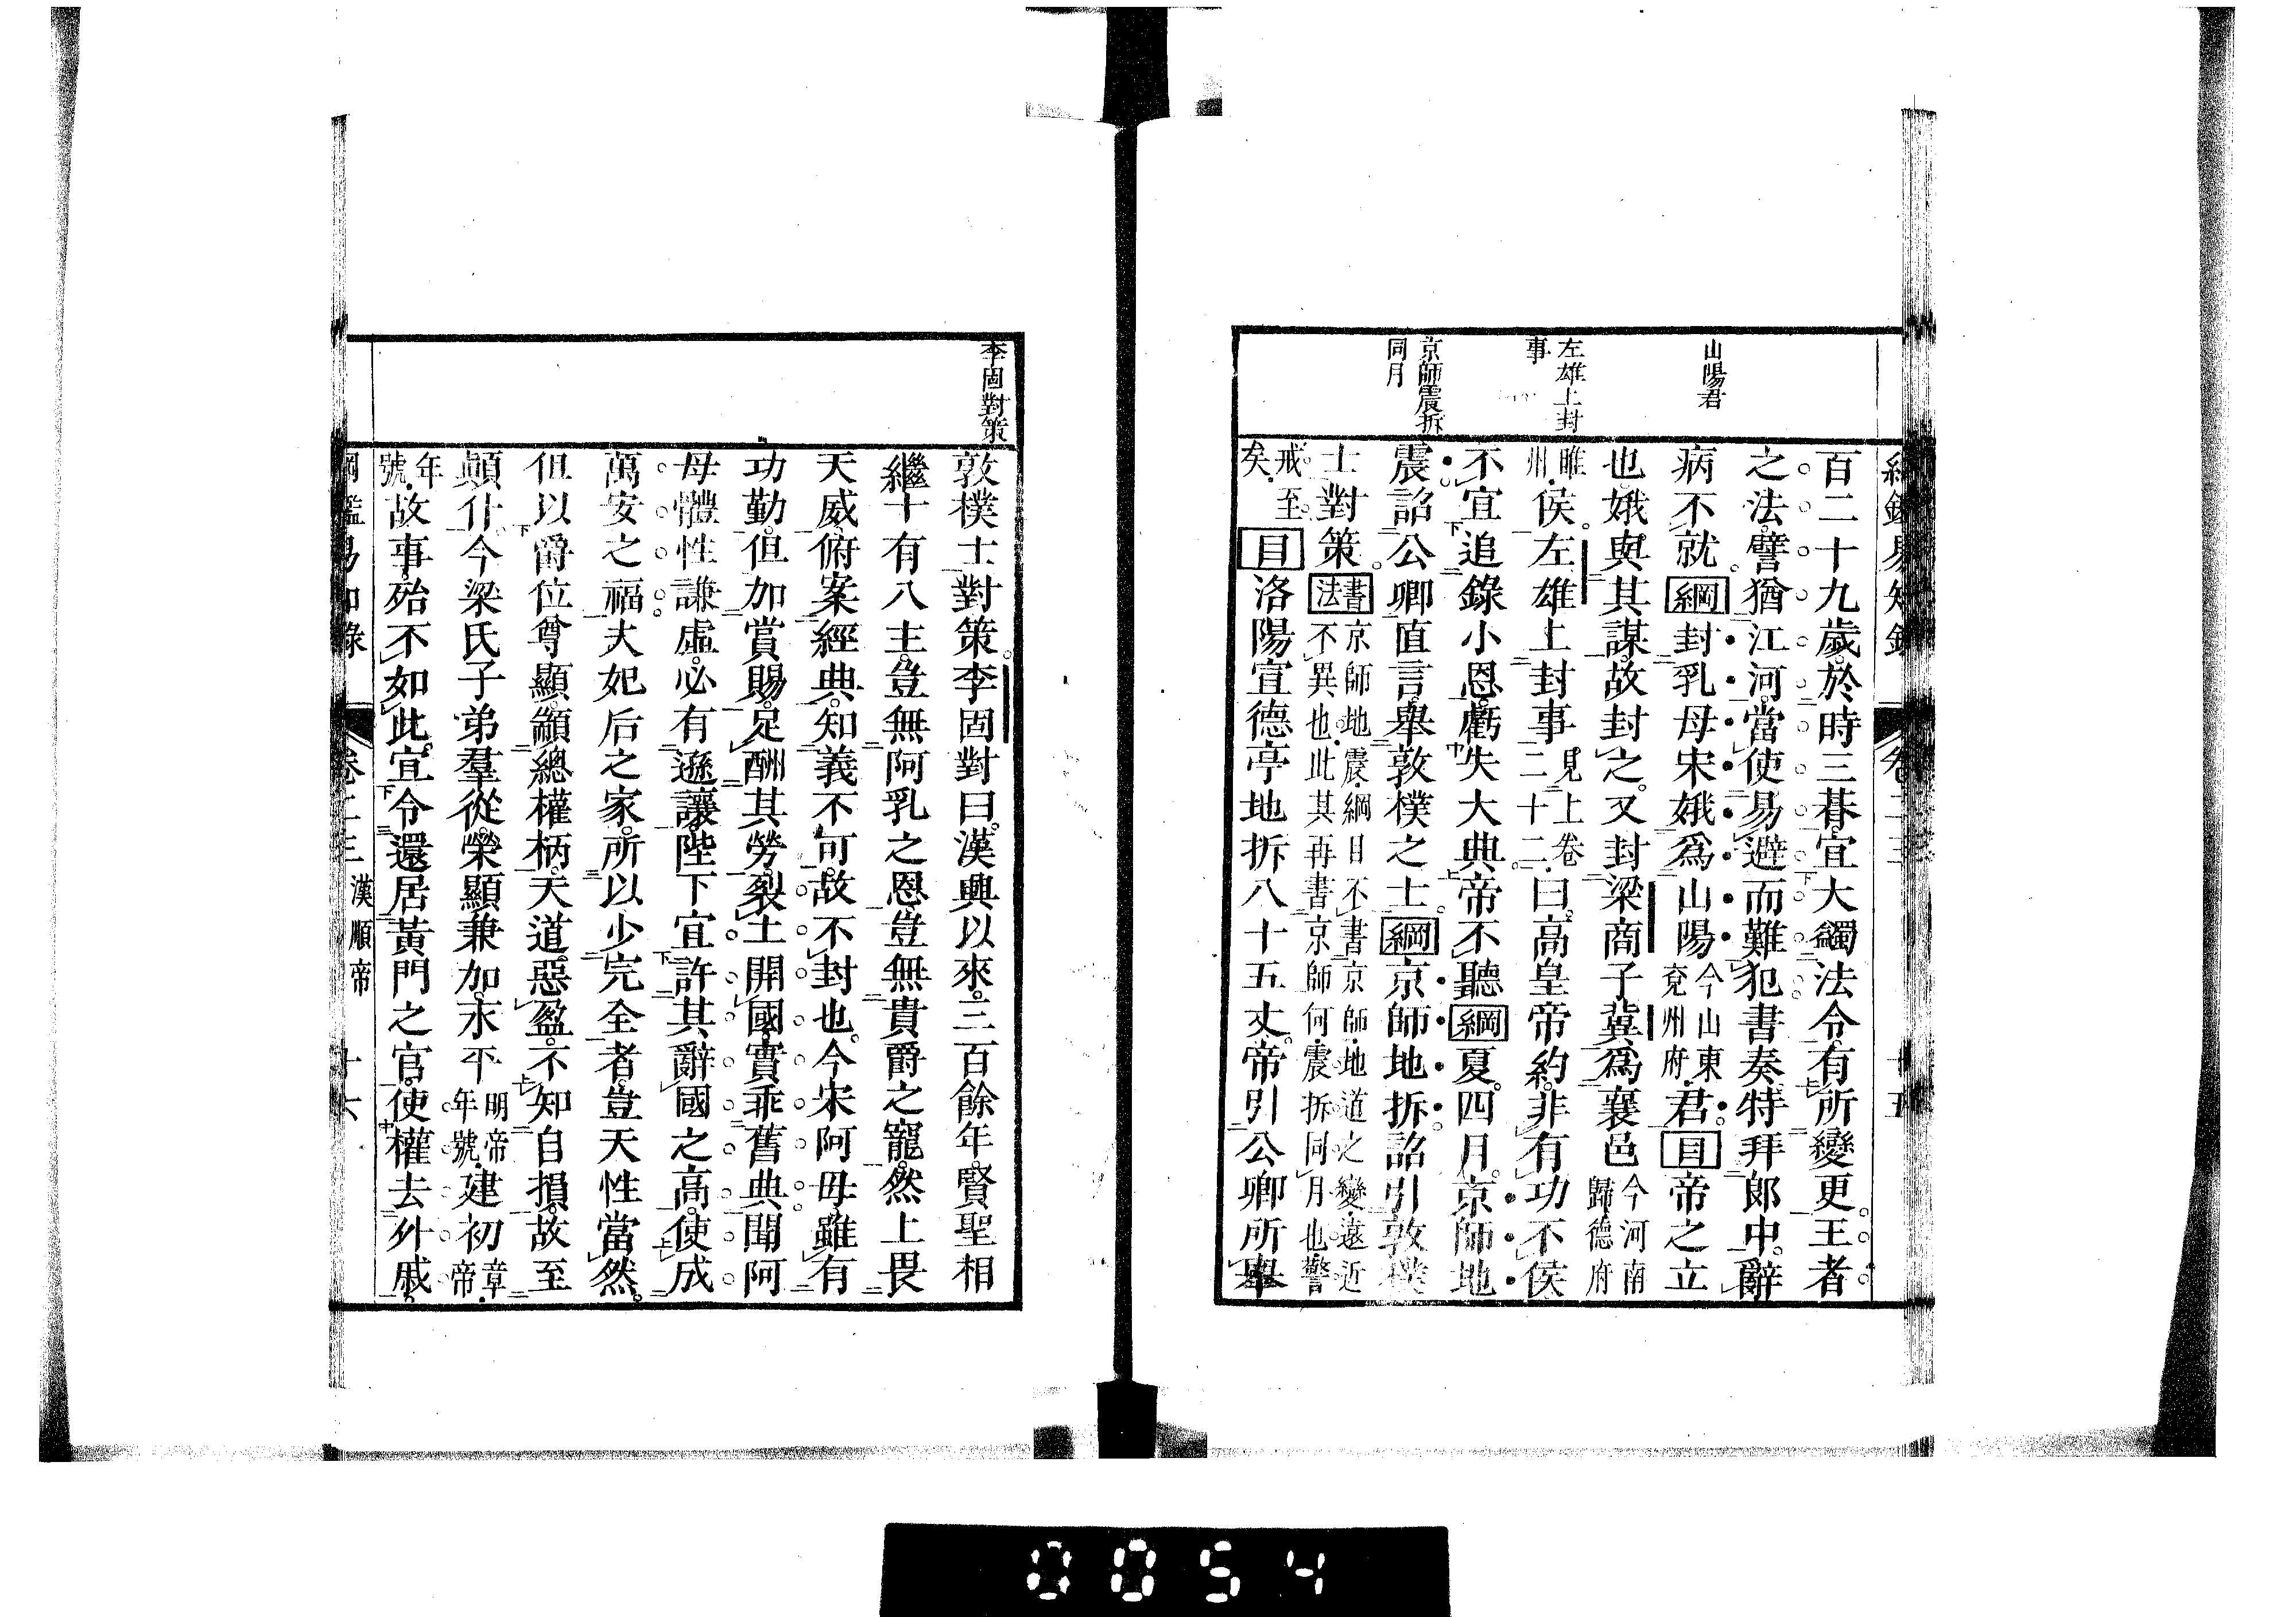 百二十九歲。於時三朞。宜大蠲法令。有所變更。王者
之法。譬猶江河。當使易避而難犯。書奏。特拜郎中。辭
病不就。綱封乳母宋娥爲山陽今山東兗州府。君。目帝之立
也。娥與其謀。故封之。又封梁商子冀爲襄邑今河南歸德府
睢州。侯。左雄上封事見上卷二十二。曰。高皇帝約。非有功不侯。
不宜追錄小恩。虧失大典。帝不聽。綱夏。四月。京師地
震。詔公卿直言。舉敦樸之士。綱京師地拆。詔引敦樸
士對策。書法京師地震。綱目不書京師。地道之變。遠近不異也。此其再書京師何。震拆同月也。警
戒至矣。目洛陽宣德亭地拆八十五丈。帝引公卿所舉
山陽君
左雄上封
事
京師震拆
同月
敦樸士對策。李固對曰。漢興以來。三百餘年。賢聖相
繼十有八主。豈無阿乳之恩。豈無貴爵之寵。然上畏
天威。俯案經典。知義不可。故不封也。今宋阿母雖有
功勤。但加賞賜。足酬其勞。裂土開國。實乖舊典。聞阿
母體性謙虛。必有遜讓。陛下宜許其辭國之高。使成
萬安之福。夫妃后之家。所以少完全者。豈天性當然。
但以爵位尊顯。顓總權柄。天道惡盈。不知自損。故至
顚仆。今梁氏子弟羣從。榮顯兼加。永平明帝年號。建初章帝
年號。故事。殆不如此。宜令還居黃門之官。使權去外戚。
李固對策
綱鑑易知錄
卷二三 漢順帝
十六